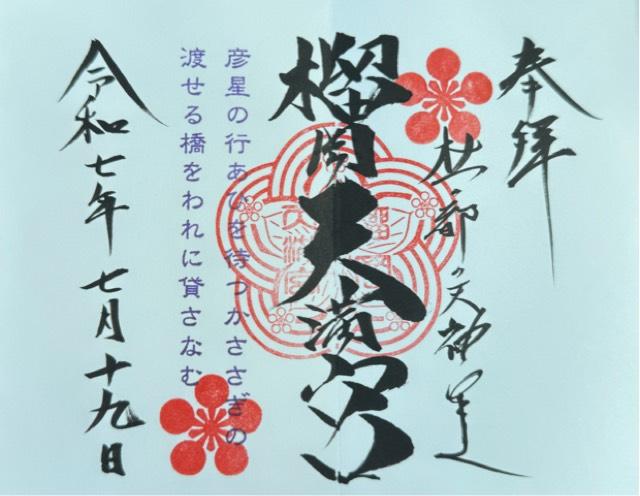 奉拝
杜の都の天神さま
榴岡天満宮
彦星の行あひを待つかささぎの
渡せる橋をわれに貸さなむ
令和七年七月十九日